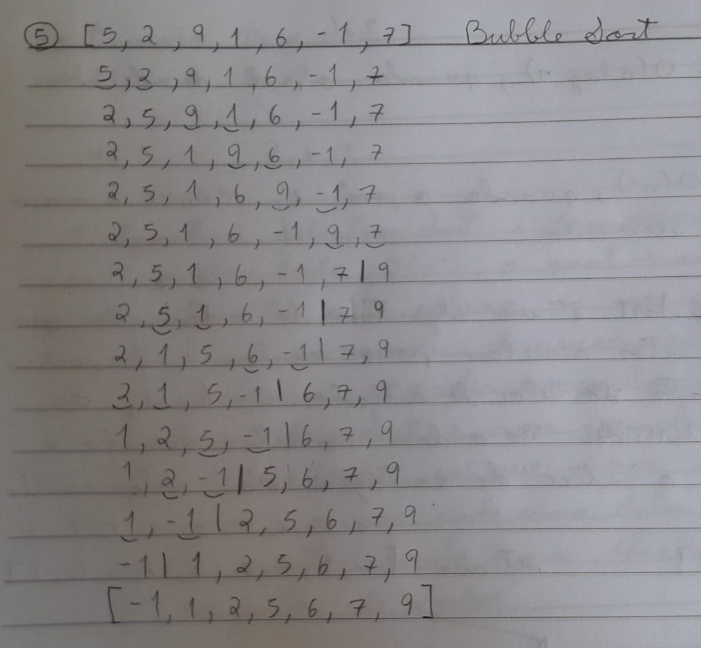 ⑤ [5, 2, 9, 1, 6, -1, 7] Bubble Sort
5, 2, 9, 1, 6, -1, 7
2, 5, 9, 1, 6, -1, 7
2, 5, 1, 9, 6, -1, 7
2, 5, 1, 6, 9, -1, 7
2, 5, 1, 6, -1, 9, 7
2, 5, 1, 6, -1, 7 | 9
2, 5, 1, 6, -1 | 7 9
2, 1, 5, 6, -1 | 7, 9
2, 1, 5, -1 | 6, 7, 9
1, 2, 5, -1 | 6, 7, 9
1, 2, -1 | 5, 6, 7, 9
1, -1 | 2, 5, 6, 7, 9
-1 | 1, 2, 5, 6, 7, 9
[-1, 1, 2, 5, 6, 7, 9]